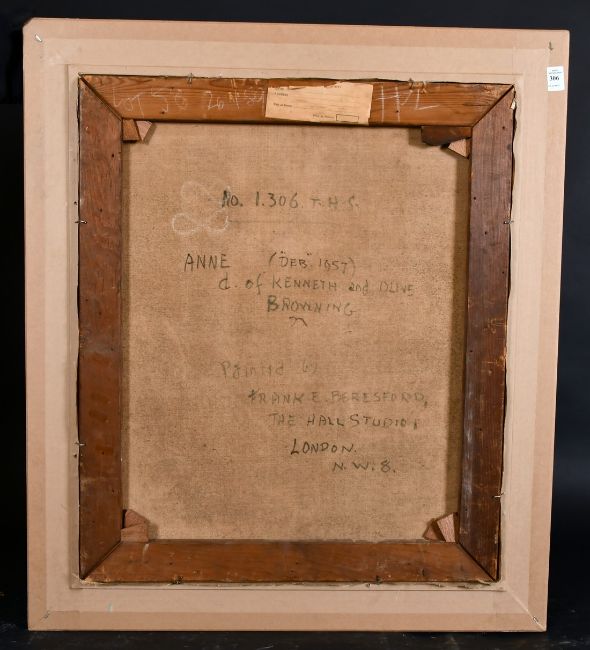 306
LOT 50
No. 1.306 T.H.S.
ANNE ("DEB" 1957)
d. of KENNETH and OLIVE
BROWNING
Painted by
FRANK E. BERESFORD,
THE HALL STUDIO,
LONDON.
N.W.8.